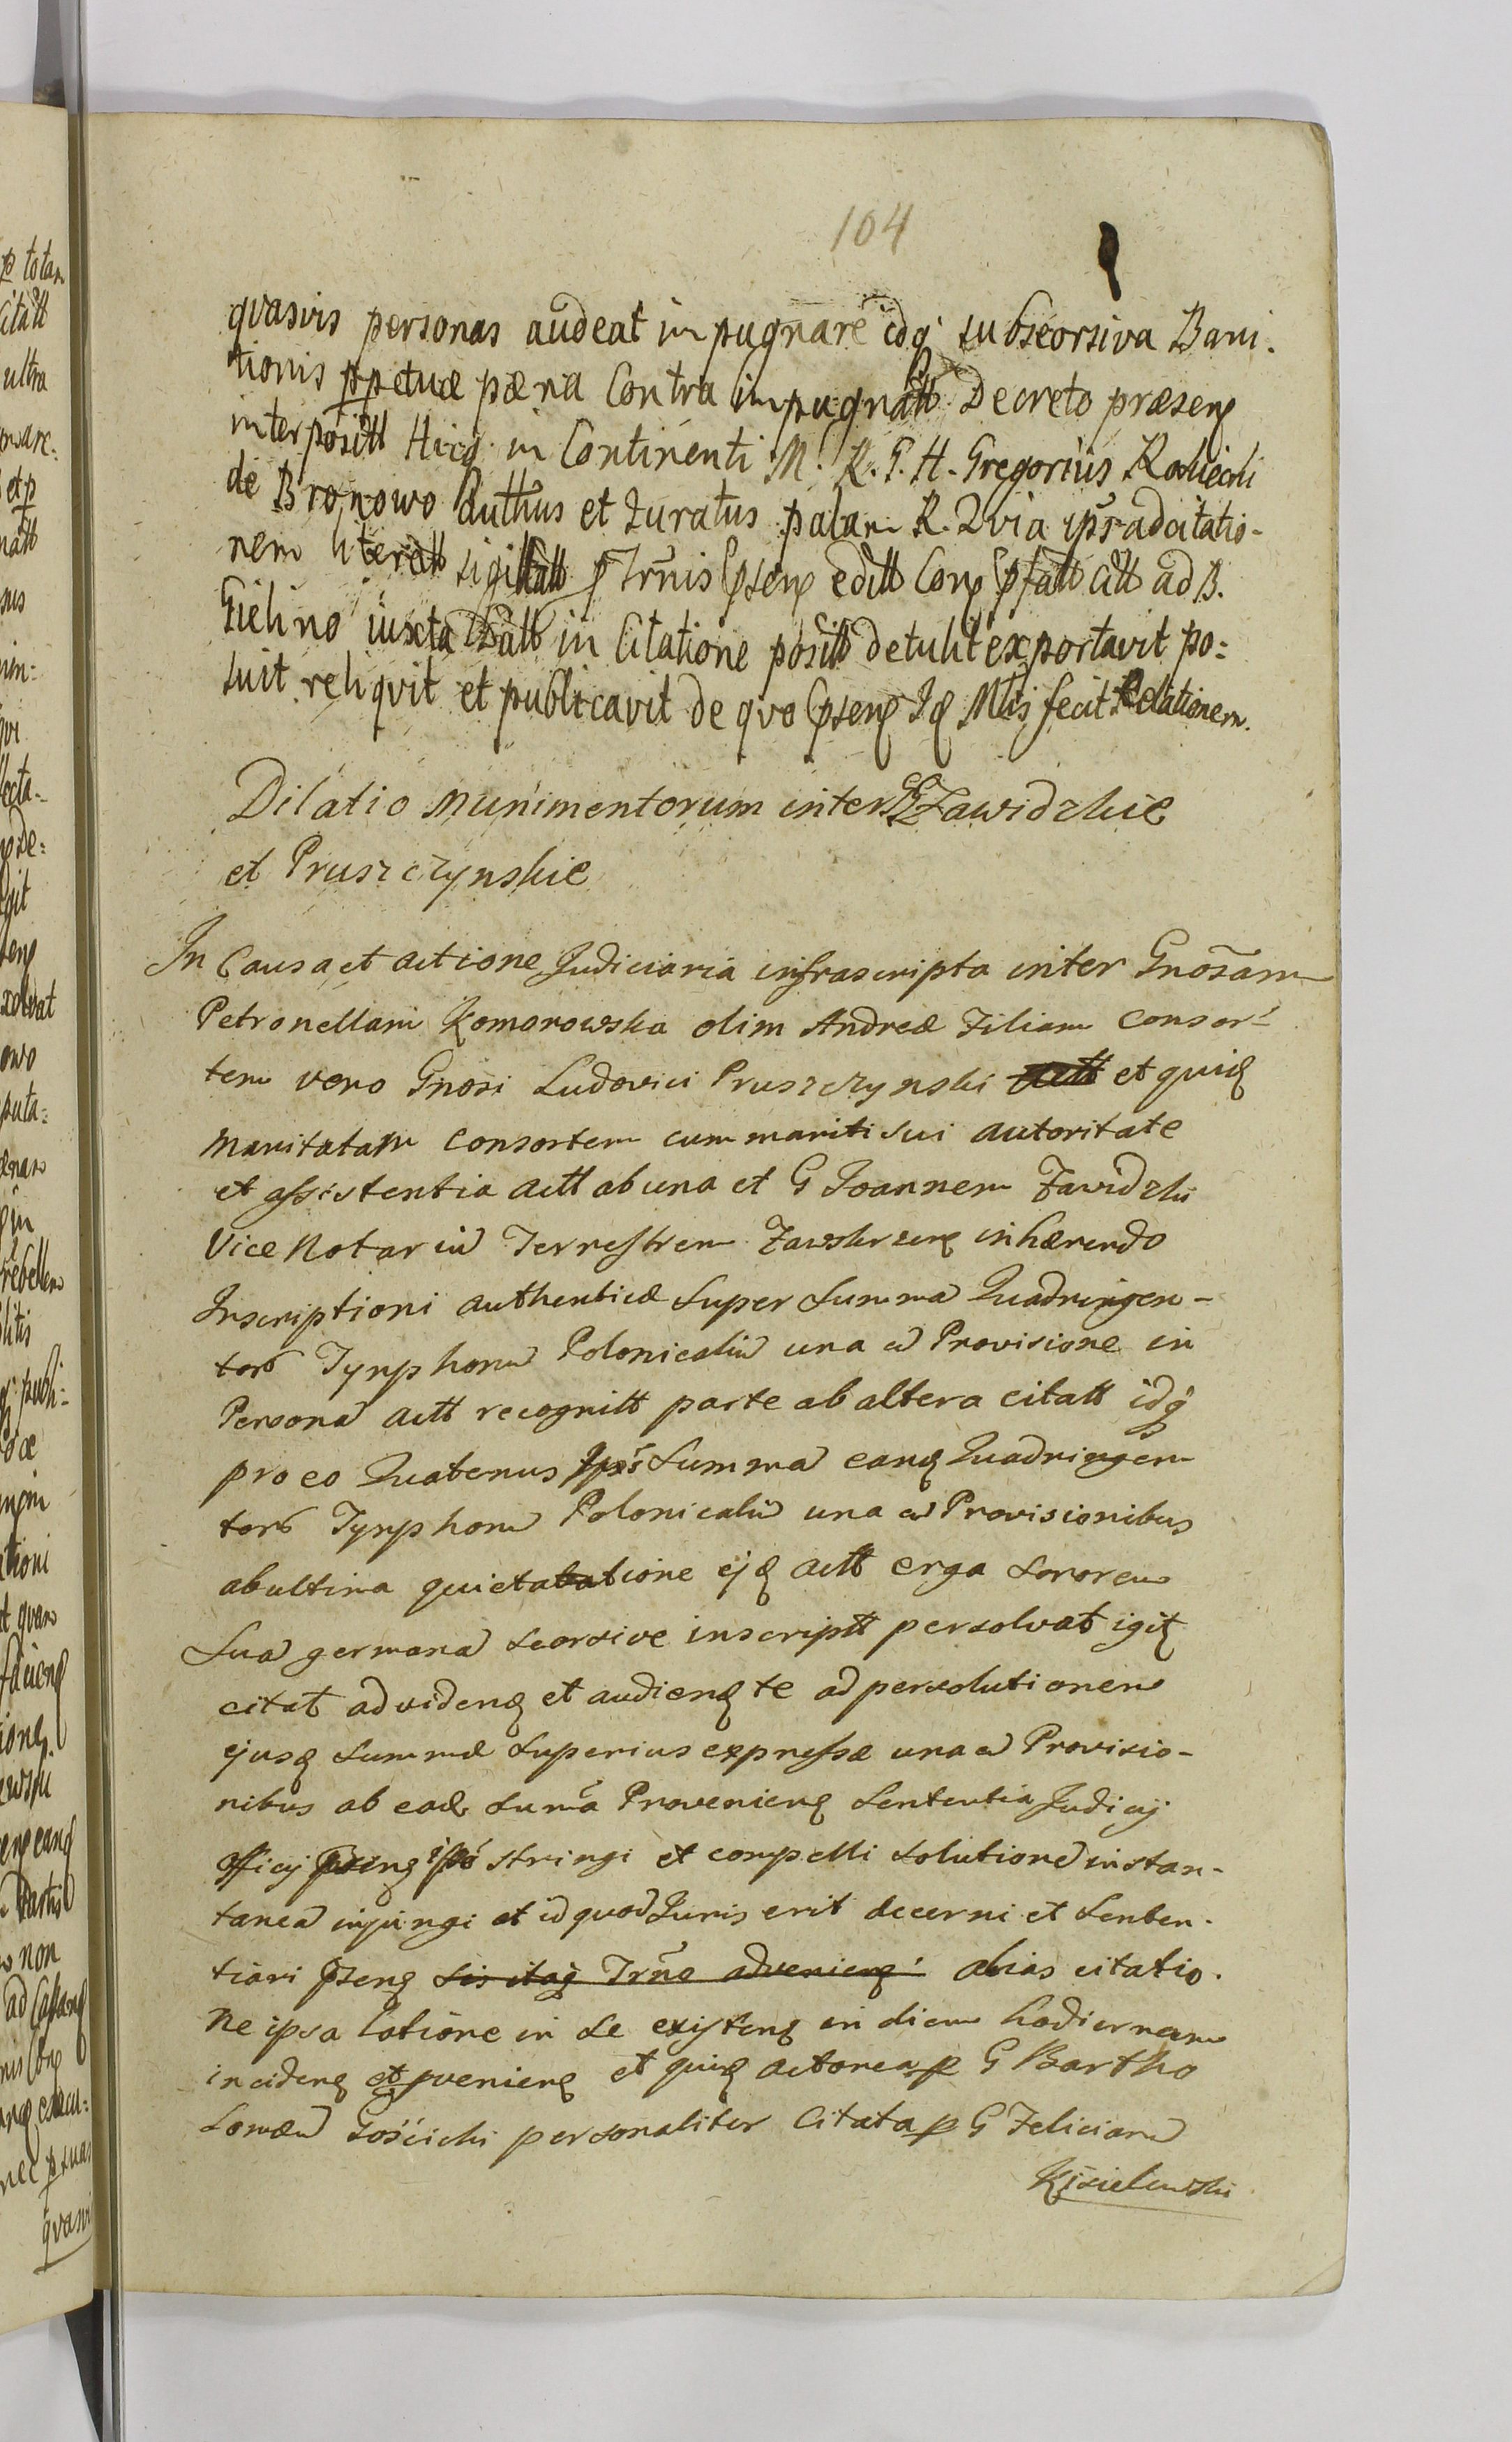 104
quasvis personas audeat impugnare idq subseorsiva Bani-
tionis ppetuæ pæna Contra impugnatt Decreto præsenq
interpositt Hicq in Continenti M. R. G. H. Gregorius
de Bronowo Authus et Juratus palam R. Qvia ips ad citatio-
nem literatt sigillatt p Trnis psenq editt Conq pfatt citt ad B.
Gielino iuxta in Citatione positt detulit exportavit po=
suit reliqvit et publicavit de qvo psenq Jq Mtis fecit Relationem.
Dilatio munimentorum inter GG Zawidzkie
et Pruszczynskie
In Causa et actione Judiciaria infrascripta inter Gnosam
Petronellam Komorowska olim Andreæ Filiam Consor-
tem vero Gnosi Ludovici Pruszczynski actt et quiq
maritatam consortem cum mariti sui autoritate
et assistentia actt ab una et G Joannem Zawidzki
Vice Notariu Terrestrem Zawskrzenq inhærendo
Inscriptioni authenticæ super summa Quadringen-
tor Tynphonu Polonicaliu una cu Provisione in
Persona actt recognitt parte ab altera citatt idq
pro eo Quatenus Ipsi Summa eanq Quadringen
tor Tynphonu Polonicaliu una cu Provisionibus
ab ultima quietatatione ejq actt erga sororem
Sua germana seorsive inscriptt persolvat igit
citat ad videnq et audienq te ad persolutionem
ejusq summæ superius expressæ una cu Provisio-
nibus ab eadq suma Provenienq Sententia Judicij
Officij psenq ipso stringi et compelli solutione instan-
tanea injungi et id quod Juris erit decerni et senten-
tiari psenq sis itaq Trno advenienq alias citatio-
ne ipsa latione in se existenq in diem hodiernam
incidenq et pvenienq et quiq actorea p G Bartho
lomæu Gościcki personaliter Citata p G Felicianu
Kisielewski